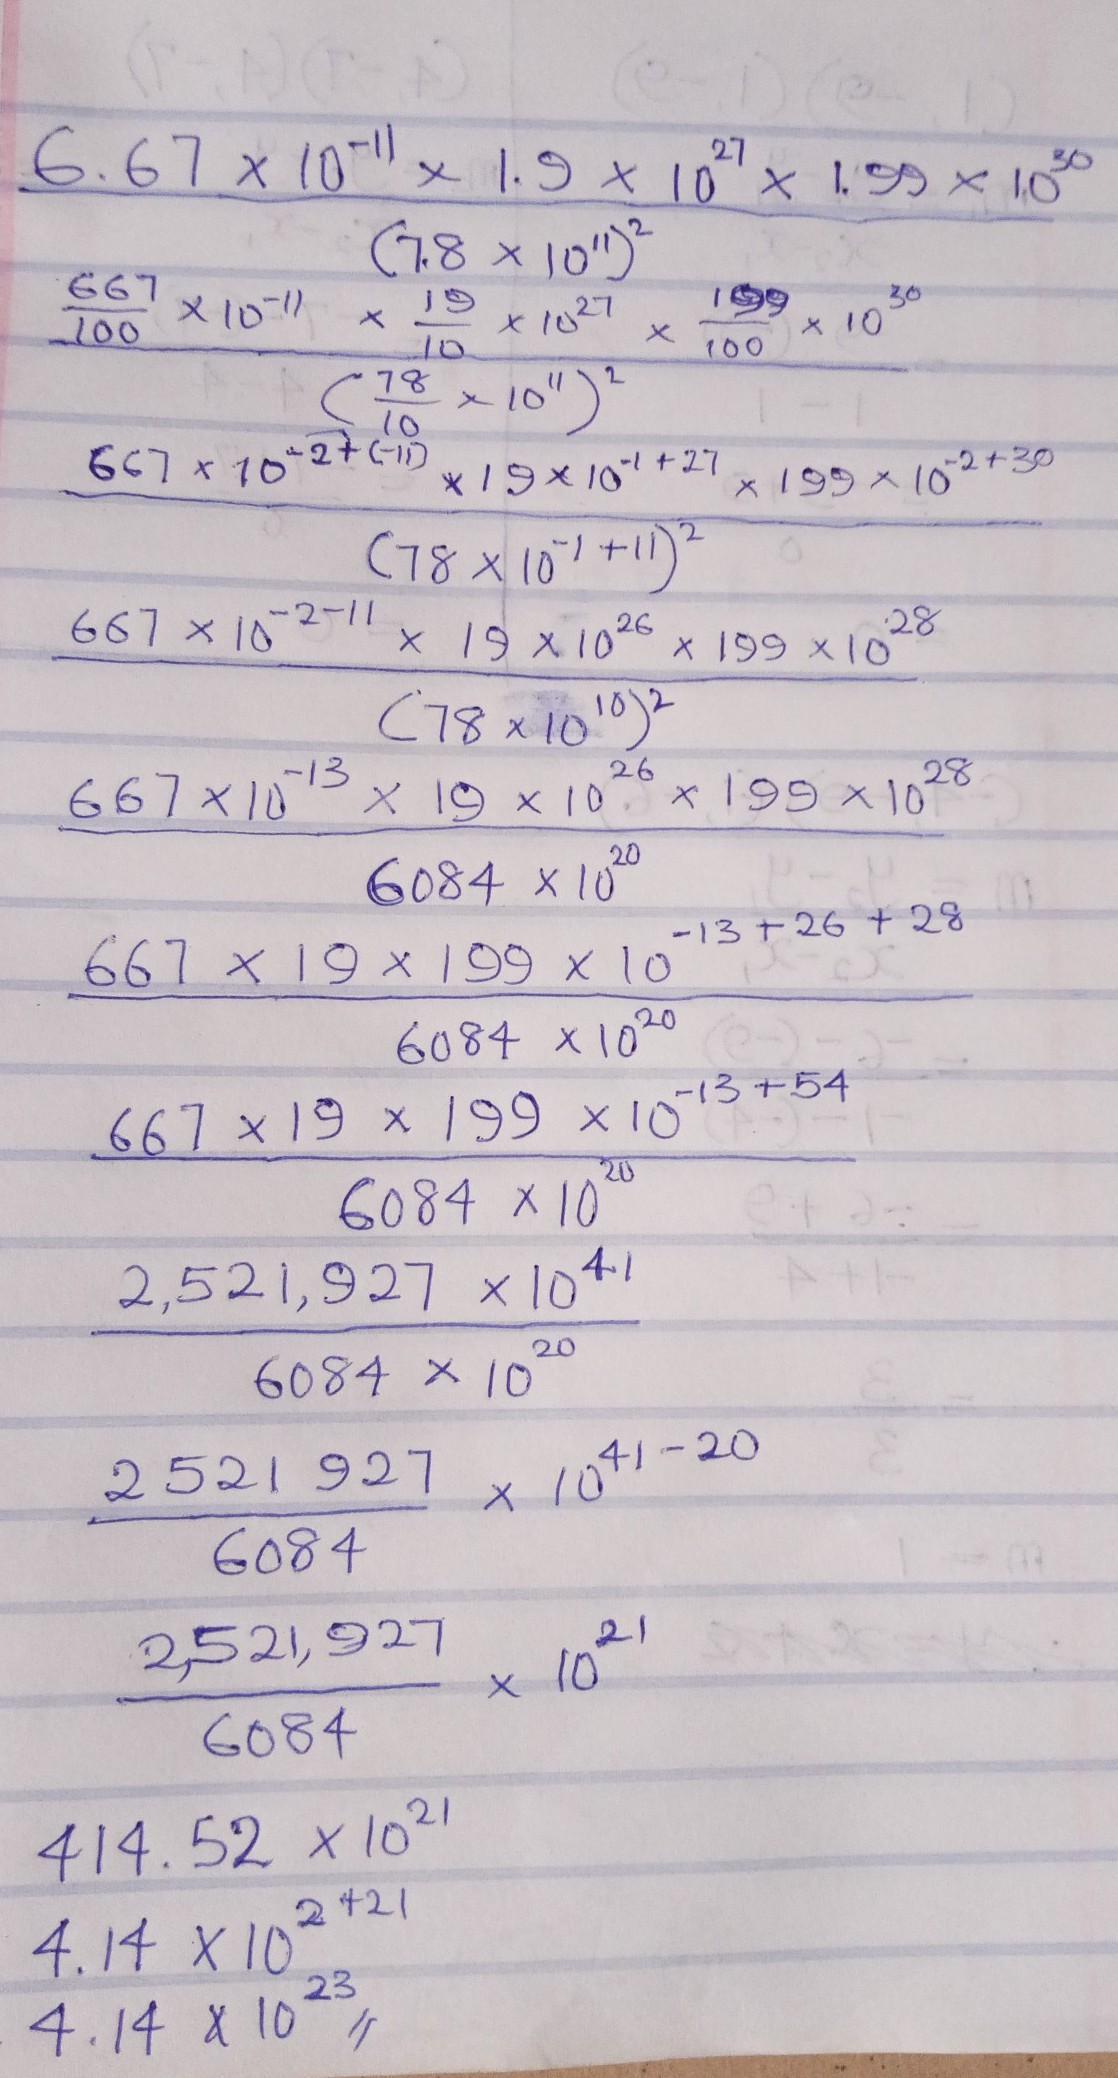 6.67 × 10⁻¹¹ × 1.9 × 10²⁷ × 1.99 × 10³⁰
(7.8 × 10¹¹)²
667/100 × 10⁻¹¹ × 19/10 × 10²⁷ × 199/100 × 10³⁰
(78/10 × 10¹¹)²
667 × 10⁻²⁺⁽⁻¹¹⁾ × 19 × 10⁻¹⁺²⁷ × 199 × 10⁻²⁺³⁰
(78 × 10⁻¹⁺¹¹)²
667 × 10⁻²⁻¹¹ × 19 × 10²⁶ × 199 × 10²⁸
(78 × 10¹⁰)²
667 × 10⁻¹³ × 19 × 10²⁶ × 199 × 10²⁸
6084 × 10²⁰
667 × 19 × 199 × 10⁻¹³⁺²⁶⁺²⁸
6084 × 10²⁰
667 × 19 × 199 × 10⁻¹³⁺⁵⁴
6084 × 10²⁰
2,521,927 × 10⁴¹
6084 × 10²⁰
2521927 × 10⁴¹⁻²⁰
6084
2,521,927 × 10²¹
6084
414.52 × 10²¹
4.14 × 10²⁺²¹
4.14 × 10²³ //